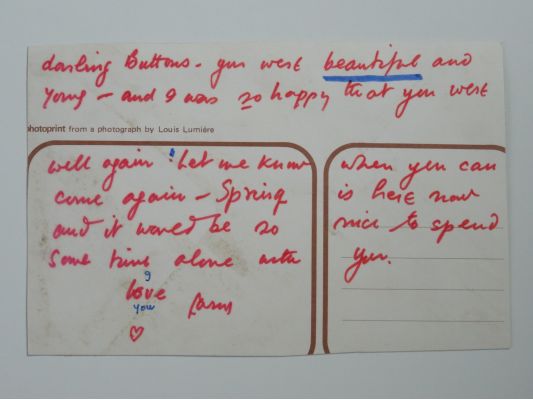 darling Buttons - you were beautiful and
young - and I was so happy that you were
photoprint from a photograph by Louis Lumière
well again! Let me know when you can
come again - Spring is here now
and it would be so nice to spend
some time alone with you.
I
love
you